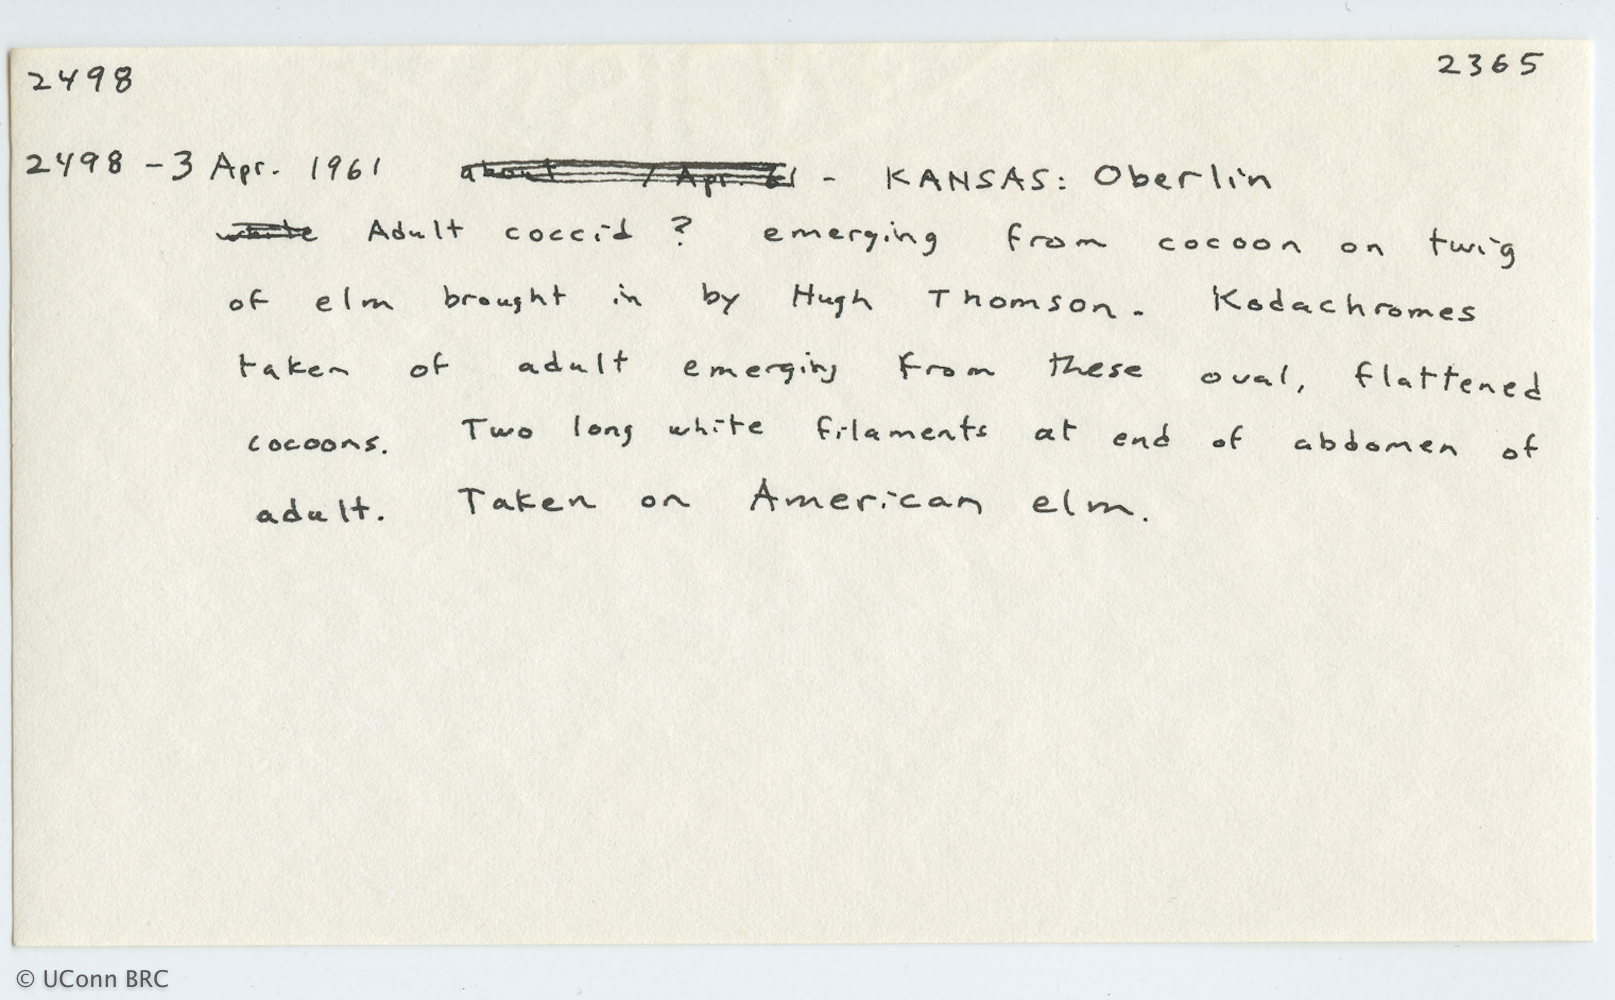 2498 2365
2498 - 3 Apr. 1961 about 1 Apr. 61 - KANSAS: Oberlin
white Adult coccid ? emerging from cocoon on twig
of elm brought in by Hugh Thomson. Kodachromes
taken of adult emerging from these oval, flattened
cocoons. Two long white filaments at end of abdomen of
adult. Taken on American elm.
© UConn BRC